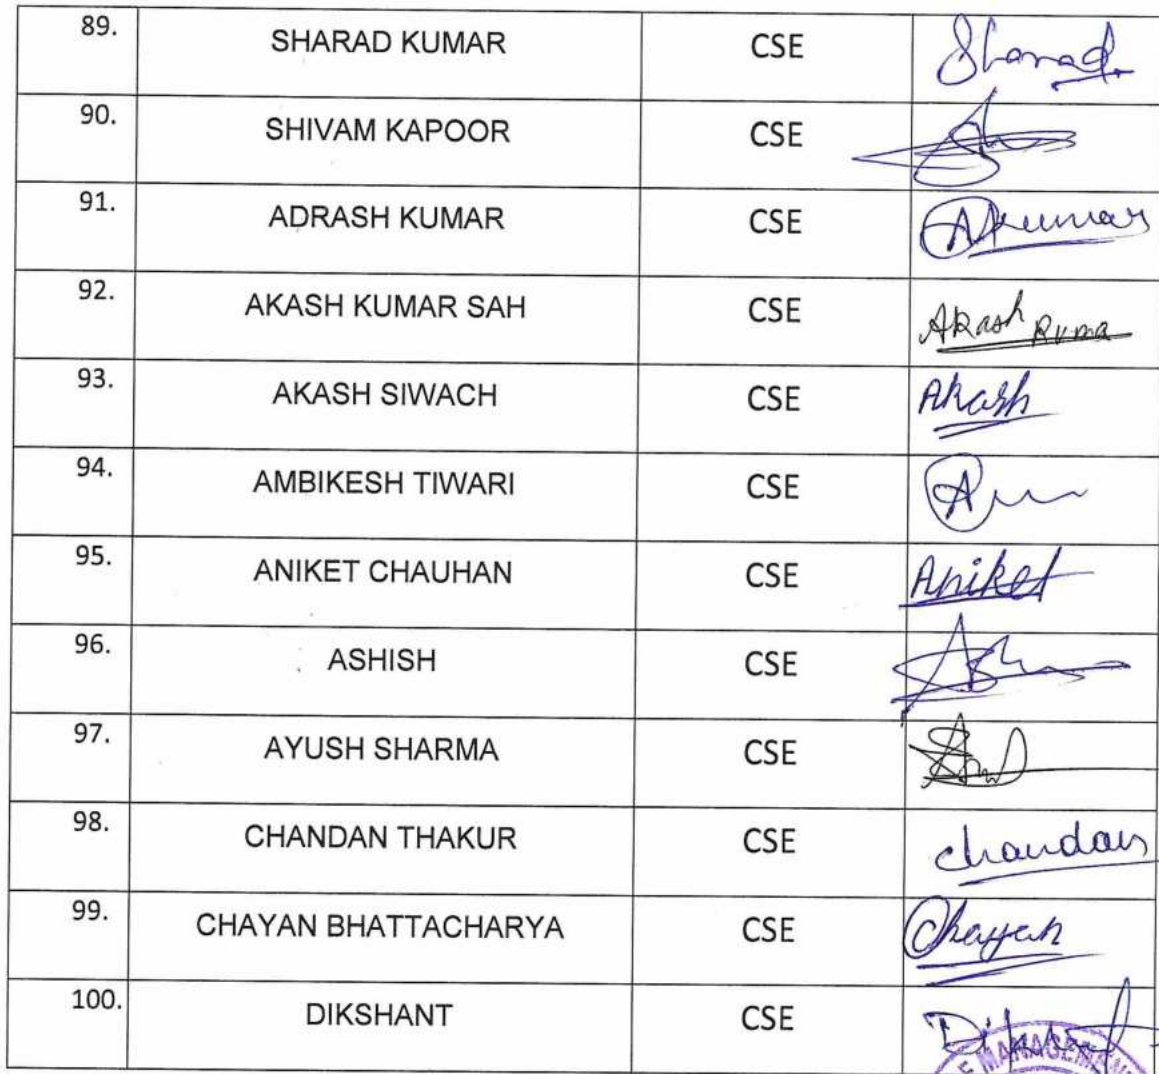 89. SHARAD KUMAR CSE Sharad
90. SHIVAM KAPOOR CSE
91. ADRASH KUMAR CSE AKumar
92. AKASH KUMAR SAH CSE Akash Kuma
93. AKASH SIWACH CSE Akash
94. AMBIKESH TIWARI CSE
95. ANIKET CHAUHAN CSE Aniket
96. ASHISH CSE
97. AYUSH SHARMA CSE
98. CHANDAN THAKUR CSE chandan
99. CHAYAN BHATTACHARYA CSE Chayan
100. DIKSHANT CSE